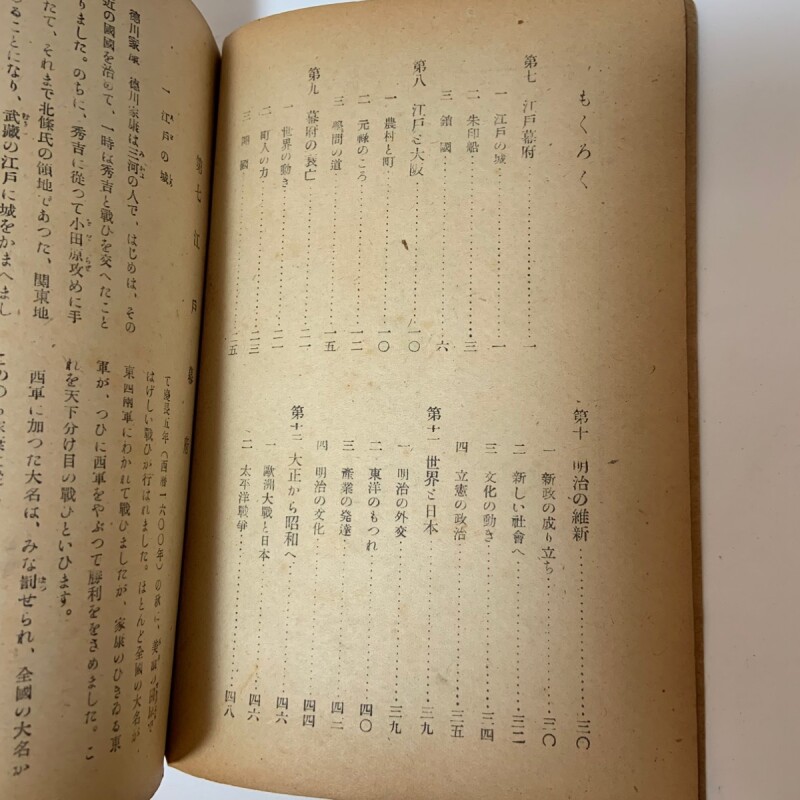 もくろく
第七 江戸幕府……一
一 江戸の城……一
二 朱印船……三
三 鎖國……六
第八 江戸と大阪……一〇
一 農村と町……一〇
二 元祿のころ……一二
三 學問の道……一五
第九 幕府の衰亡……二一
一 世界の動き……二一
二 町人の力……二三
三 開國……二五
第十 明治の維新……三〇
一 新政の成り立ち……三〇
二 新しい社會へ……三二
三 文化の動き……三四
四 立憲の政治……三五
第十一 世界と日本……三九
一 明治の外交……三九
二 東洋のもつれ……四〇
三 產業の發達……四二
四 明治の文化……四四
第十二 大正から昭和へ……四六
一 歐洲大戰と日本……四六
二 太平洋戰爭……四八
第七 江戸幕府
一 江戸の城
德川家康 德川家康は三河の人で、はじめは、その
近の國國を治めて、一時は秀吉と戰ひを交へたこと
りました。のちに、秀吉に從つて小田原攻めに手
たて、それまで北條氏の領地であつた、關東地
ることになり、武藏の江戸に城をかまへまし
て慶長五年(西曆一六〇〇年)の秋に、美濃の關原で
はげしい戰ひが行はれました。ほとんど全國の大名が、
東西兩軍にわかれて戰ひましたが、家康のひきゐる東
軍が、つひに西軍をやぶつて勝利ををさめました。こ
れを天下分け目の戰ひといひます。
西軍に加つた大名は、みな罰せられ、全國の大名が